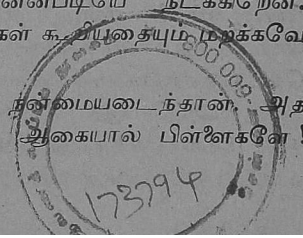 ன்னபடியே நடக்கிறேன்.
கள் கூறியதையும் மறக்கவே
நன்மையடைந்தான். அத
ஆகையால் பிள்ளைகளே !
600 009
173794